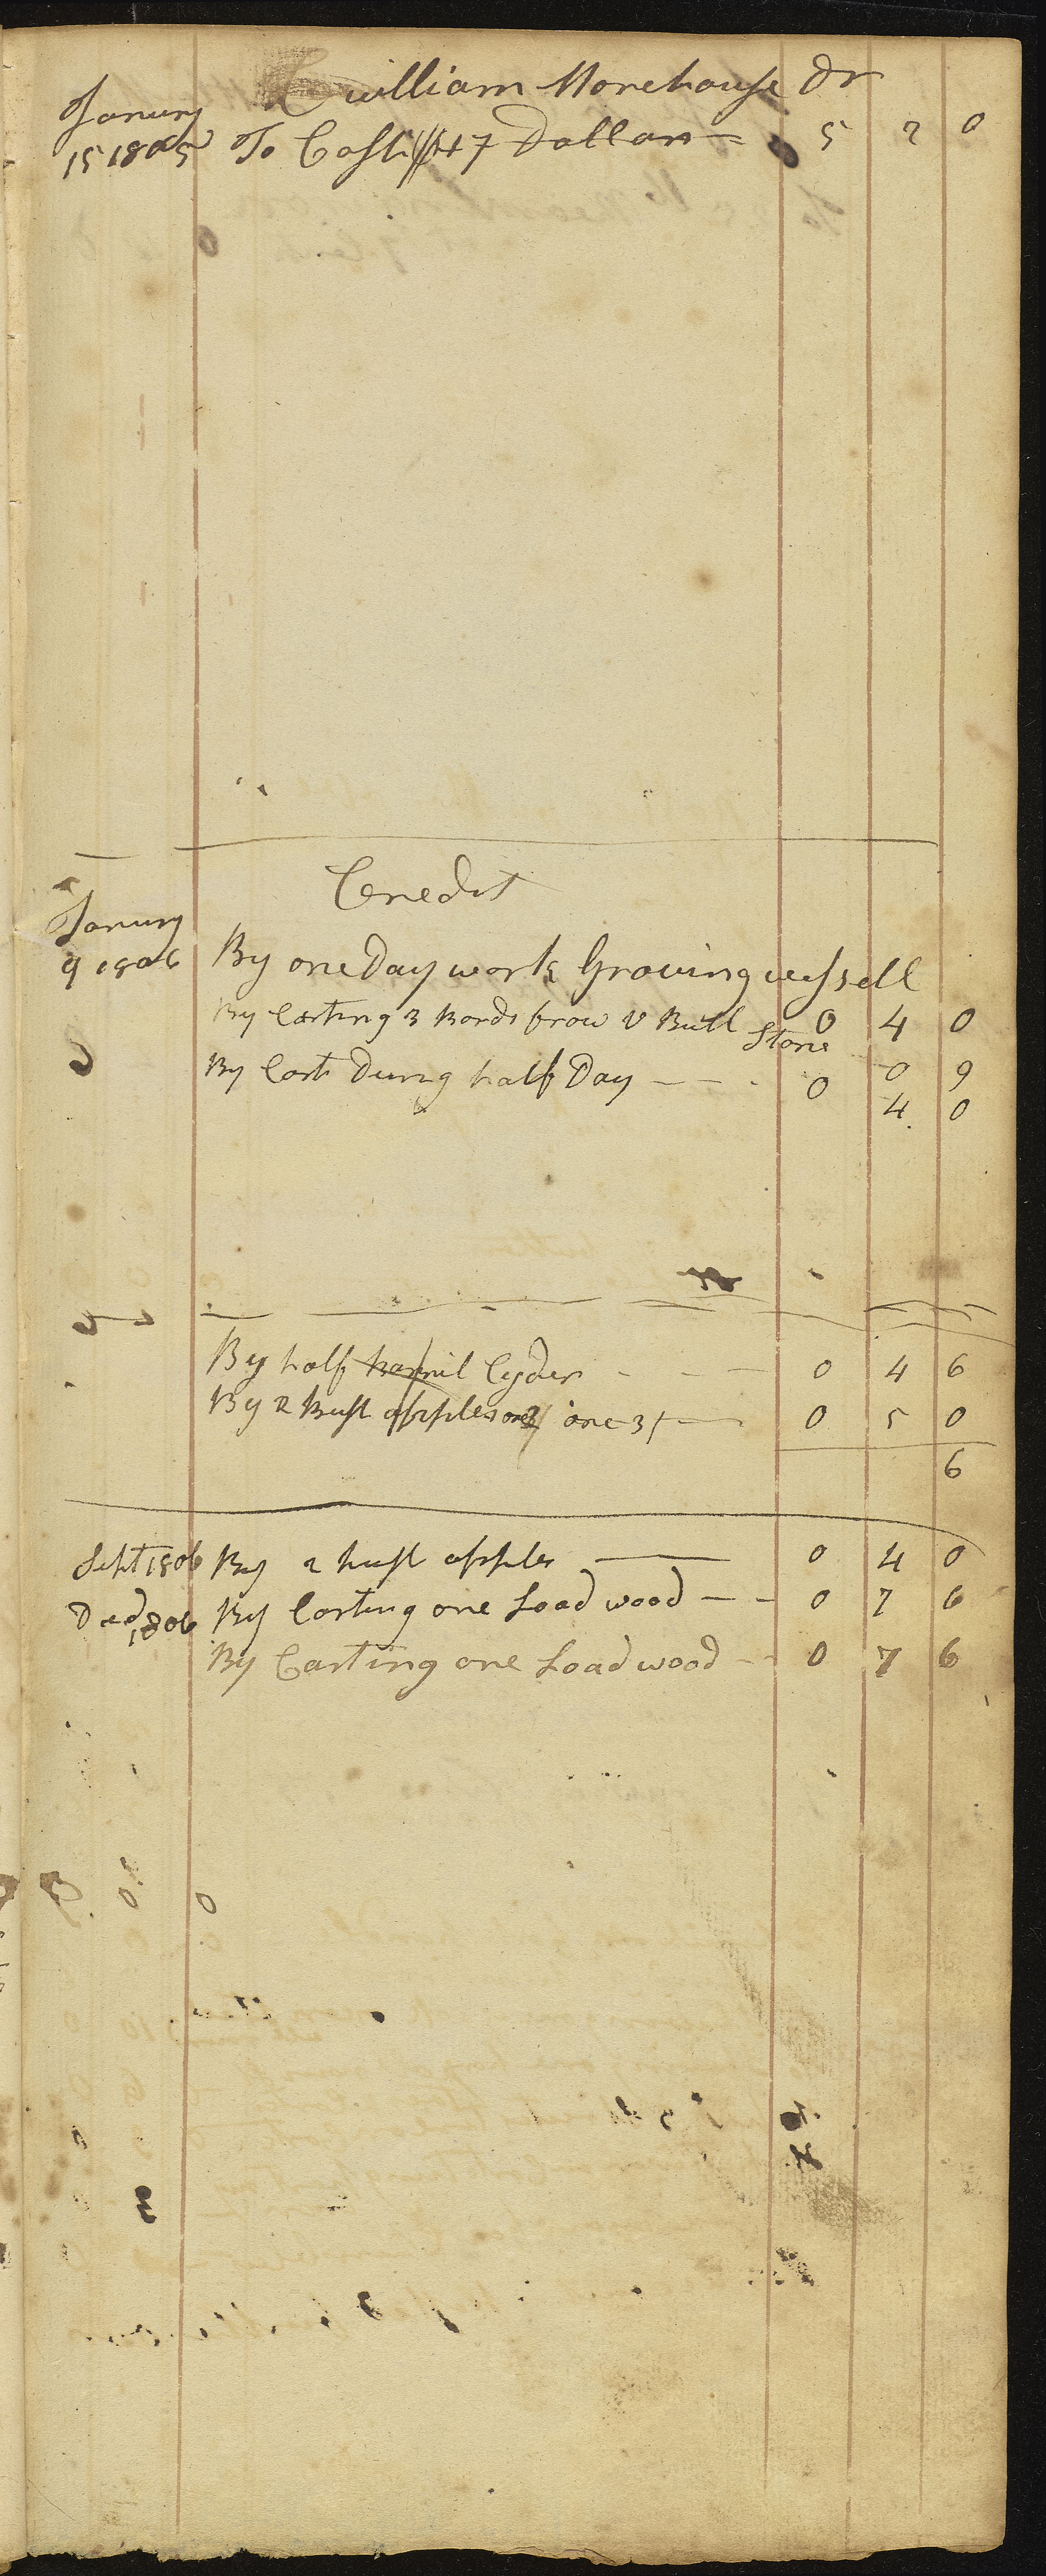 william Morehouse Dr
Janury
15 1805 To Cash 7 Dollars 5 2 0
Credit
Janury
9 1806 By one Day work Groving vessell
0 4 0
By Carting 3 bords from Butl Store
0 0 9
By Cart Dung half Day 0 4 0
By half barril Cyder 0 4 6
By 2 Bush apples one 3/ 0 5 0
6
Sept 1806 By 2 bush apples 0 4 0
Decd 1806 By Carting one Load wood 0 7 6
By Carting one Load wood 0 7 6